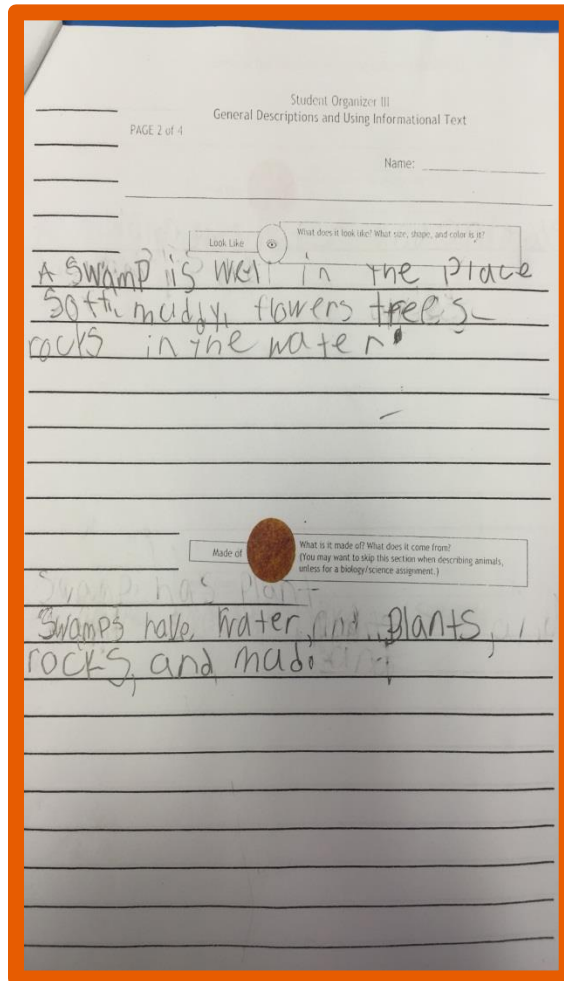 Student Organizer III
General Descriptions and Using Informational Text
PAGE 2 of 4
Name:
Look Like
What does it look like? What size, shape, and color is it?
A Swamp is wet in the place
Soft, muddy, flowers trees
rocks in the water.
Made of
What is it made of? What does it come from?
(You may want to skip this section when describing animals,
unless for a biology/science assignment.)
Swamp has plant
Swamps have water, plants,
rocks, and mad.